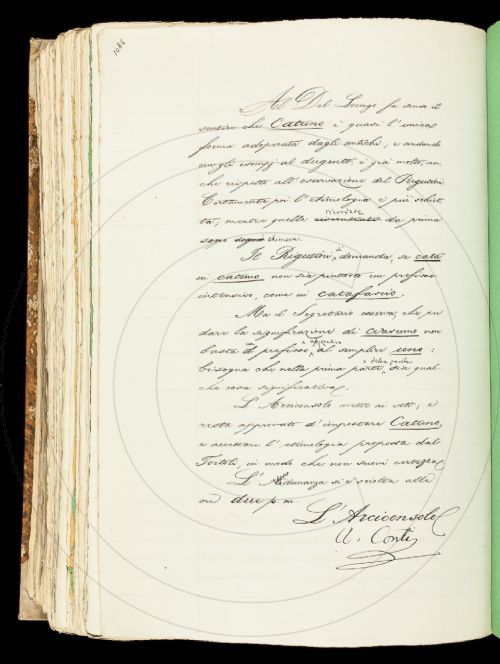 1086
Al Del Lungo fa senso il
sentire che Catuno è quasi l'unica
forma adoperata dagli antichi; e andando
cogli esempj al dugento, è già molto, an-
che rispetto all'osservazione del Rigutini
Certamente poi l'etimologia è più schiet-
ta; mentre quelle ricordate da prima
sono chimere.
Il Rigutini domanda, se cata
in catuno non sia piuttosto un prefisso
intensivo, come in catafascio.
Ma il Segretario osserva, che per
dare la significazione di ciascuno non
basta un prefisso aggiunto al semplice uno:
bisogna che nella prima parte della parola sia qual-
che cosa significativa.
L'Arciconsolo mette ai voti; e
resta approvato d'impostare Catuno,
e accettare l'etimologia proposta dal
Tortoli, in modo che non suoni certezza.
L'Adunanza si è sciolta alle
ore due p.m.
L'Arciconsolo
A. Conti